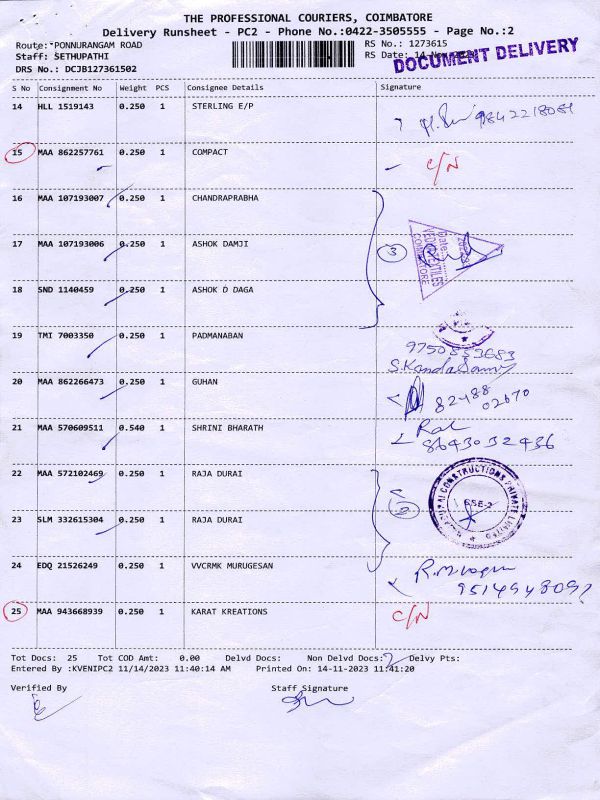 THE PROFESSIONAL COURIERS, COIMBATORE
Delivery Runsheet - PC2 - Phone No.:0422-3505555 - Page No.:2
Route: PONNURANGAM ROAD
RS No.: 1273615
Staff: SETHUPATHI
RS Date: 14-Nov-
DOCUMENT DELIVERY
DRS No.: DCJB127361502
S No Consignment No Weight PCS Consignee Details Signature
14 HLL 1519143 0.250 1 STERLING E/P
15 MAA 862257761 0.250 1 COMPACT C/N
16 MAA 107193007 0.250 1 CHANDRAPRABHA
17 MAA 107193006 0.250 1 ASHOK DAMJI 3
COIMBATORE
18 SND 1140459 0.250 1 ASHOK D DAGA
19 TMI 7003350 0.250 1 PADMANABAN
9750853683
S.KandaSamy
20 MAA 862266473 0.250 1 GUHAN 82488
02670
21 MAA 570609511 0.540 1 SHRINI BHARATH
8643032436
22 MAA 572102469 0.250 1 RAJA DURAI
CONSTRUCTIONS PRIVATE LIMITED
23 SLM 332615304 0.250 1 RAJA DURAI 2
24 EDQ 21526249 0.250 1 VVCRMK MURUGESAN
25 MAA 943668939 0.250 1 KARAT KREATIONS C/N
Tot Docs: 25 Tot COD Amt: 0.00 Delvd Docs: Non Delvd Docs: 2 Delvy Pts:
Entered By :KVENIPC2 11/14/2023 11:40:14 AM Printed On: 14-11-2023 11:41:20
Verified By Staff Signature